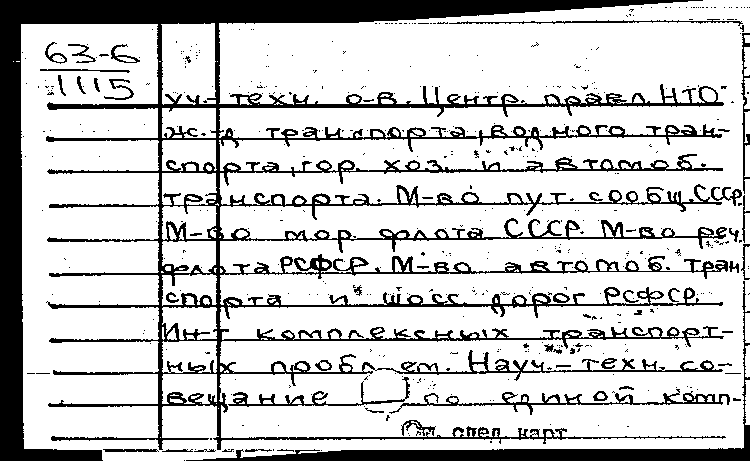 63-6
1115
уч.-техн. о-в. Центр. правл. НТО
ж.-д транспорта, водного тран-
спорта, гор. хоз. и автомоб.
транспорта. М-во пут. сообщ. СССР
М-во мор. флота СССР. М-во реч.
флота РСФСР. М-во автомоб. тран
спорта и шосс. дорог РСФСР.
Ин-т комплексных транспорт-
ных проблем. Науч.-техн. со-
вещание по единой комп-
См. след. карт